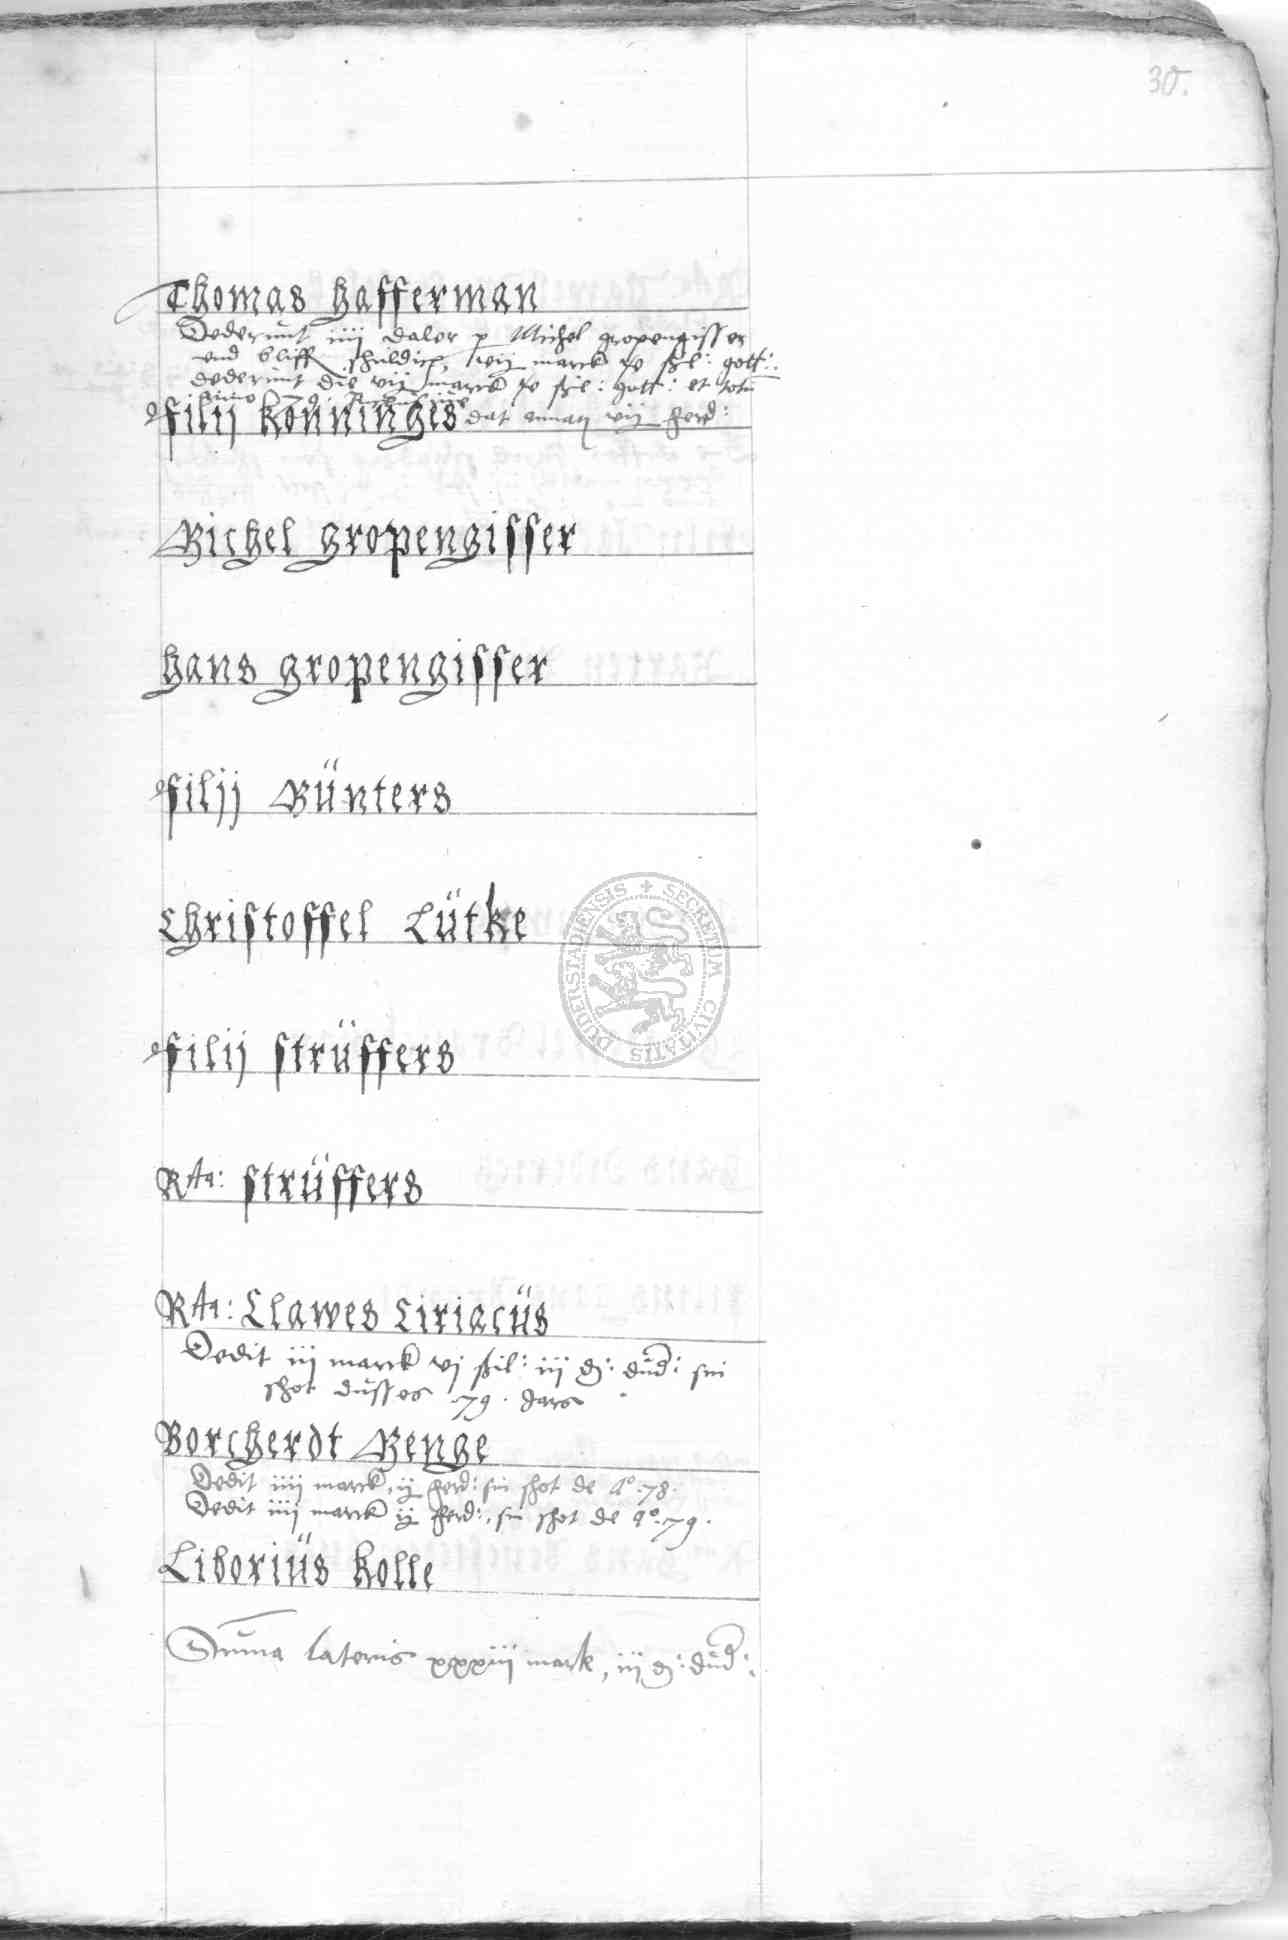 30.
Thomas Hafferman
Dederunt iiij daler p Michel gropengisser
vnd bliff schuldich, viij marck sßil: gott:
dederunt die vij marck ßil: gott: et
Anno 79.
filij konningis dat vij ferd:
Michel gropengisser
Hans gropengisser
filij Bünters
Christoffel Lütke
filij strüffers
Rta: strüffers
Rta: Clawes Ciriacüs
Dedit iij marck vj ßil: iij d: dud: sin
schot dusses 79. Jars
Borcherdt Menge
Dedit iiij marck, ij ferd: sin schot de ao. 78.
Dedit iiij marck ij ferd:, sin schot de ao. 79.
Liboriüs kolle
Summa lateris xxxiij mark, iij d: dud:
SECRETUM CIVITATIS DUDERSTADIENSIS